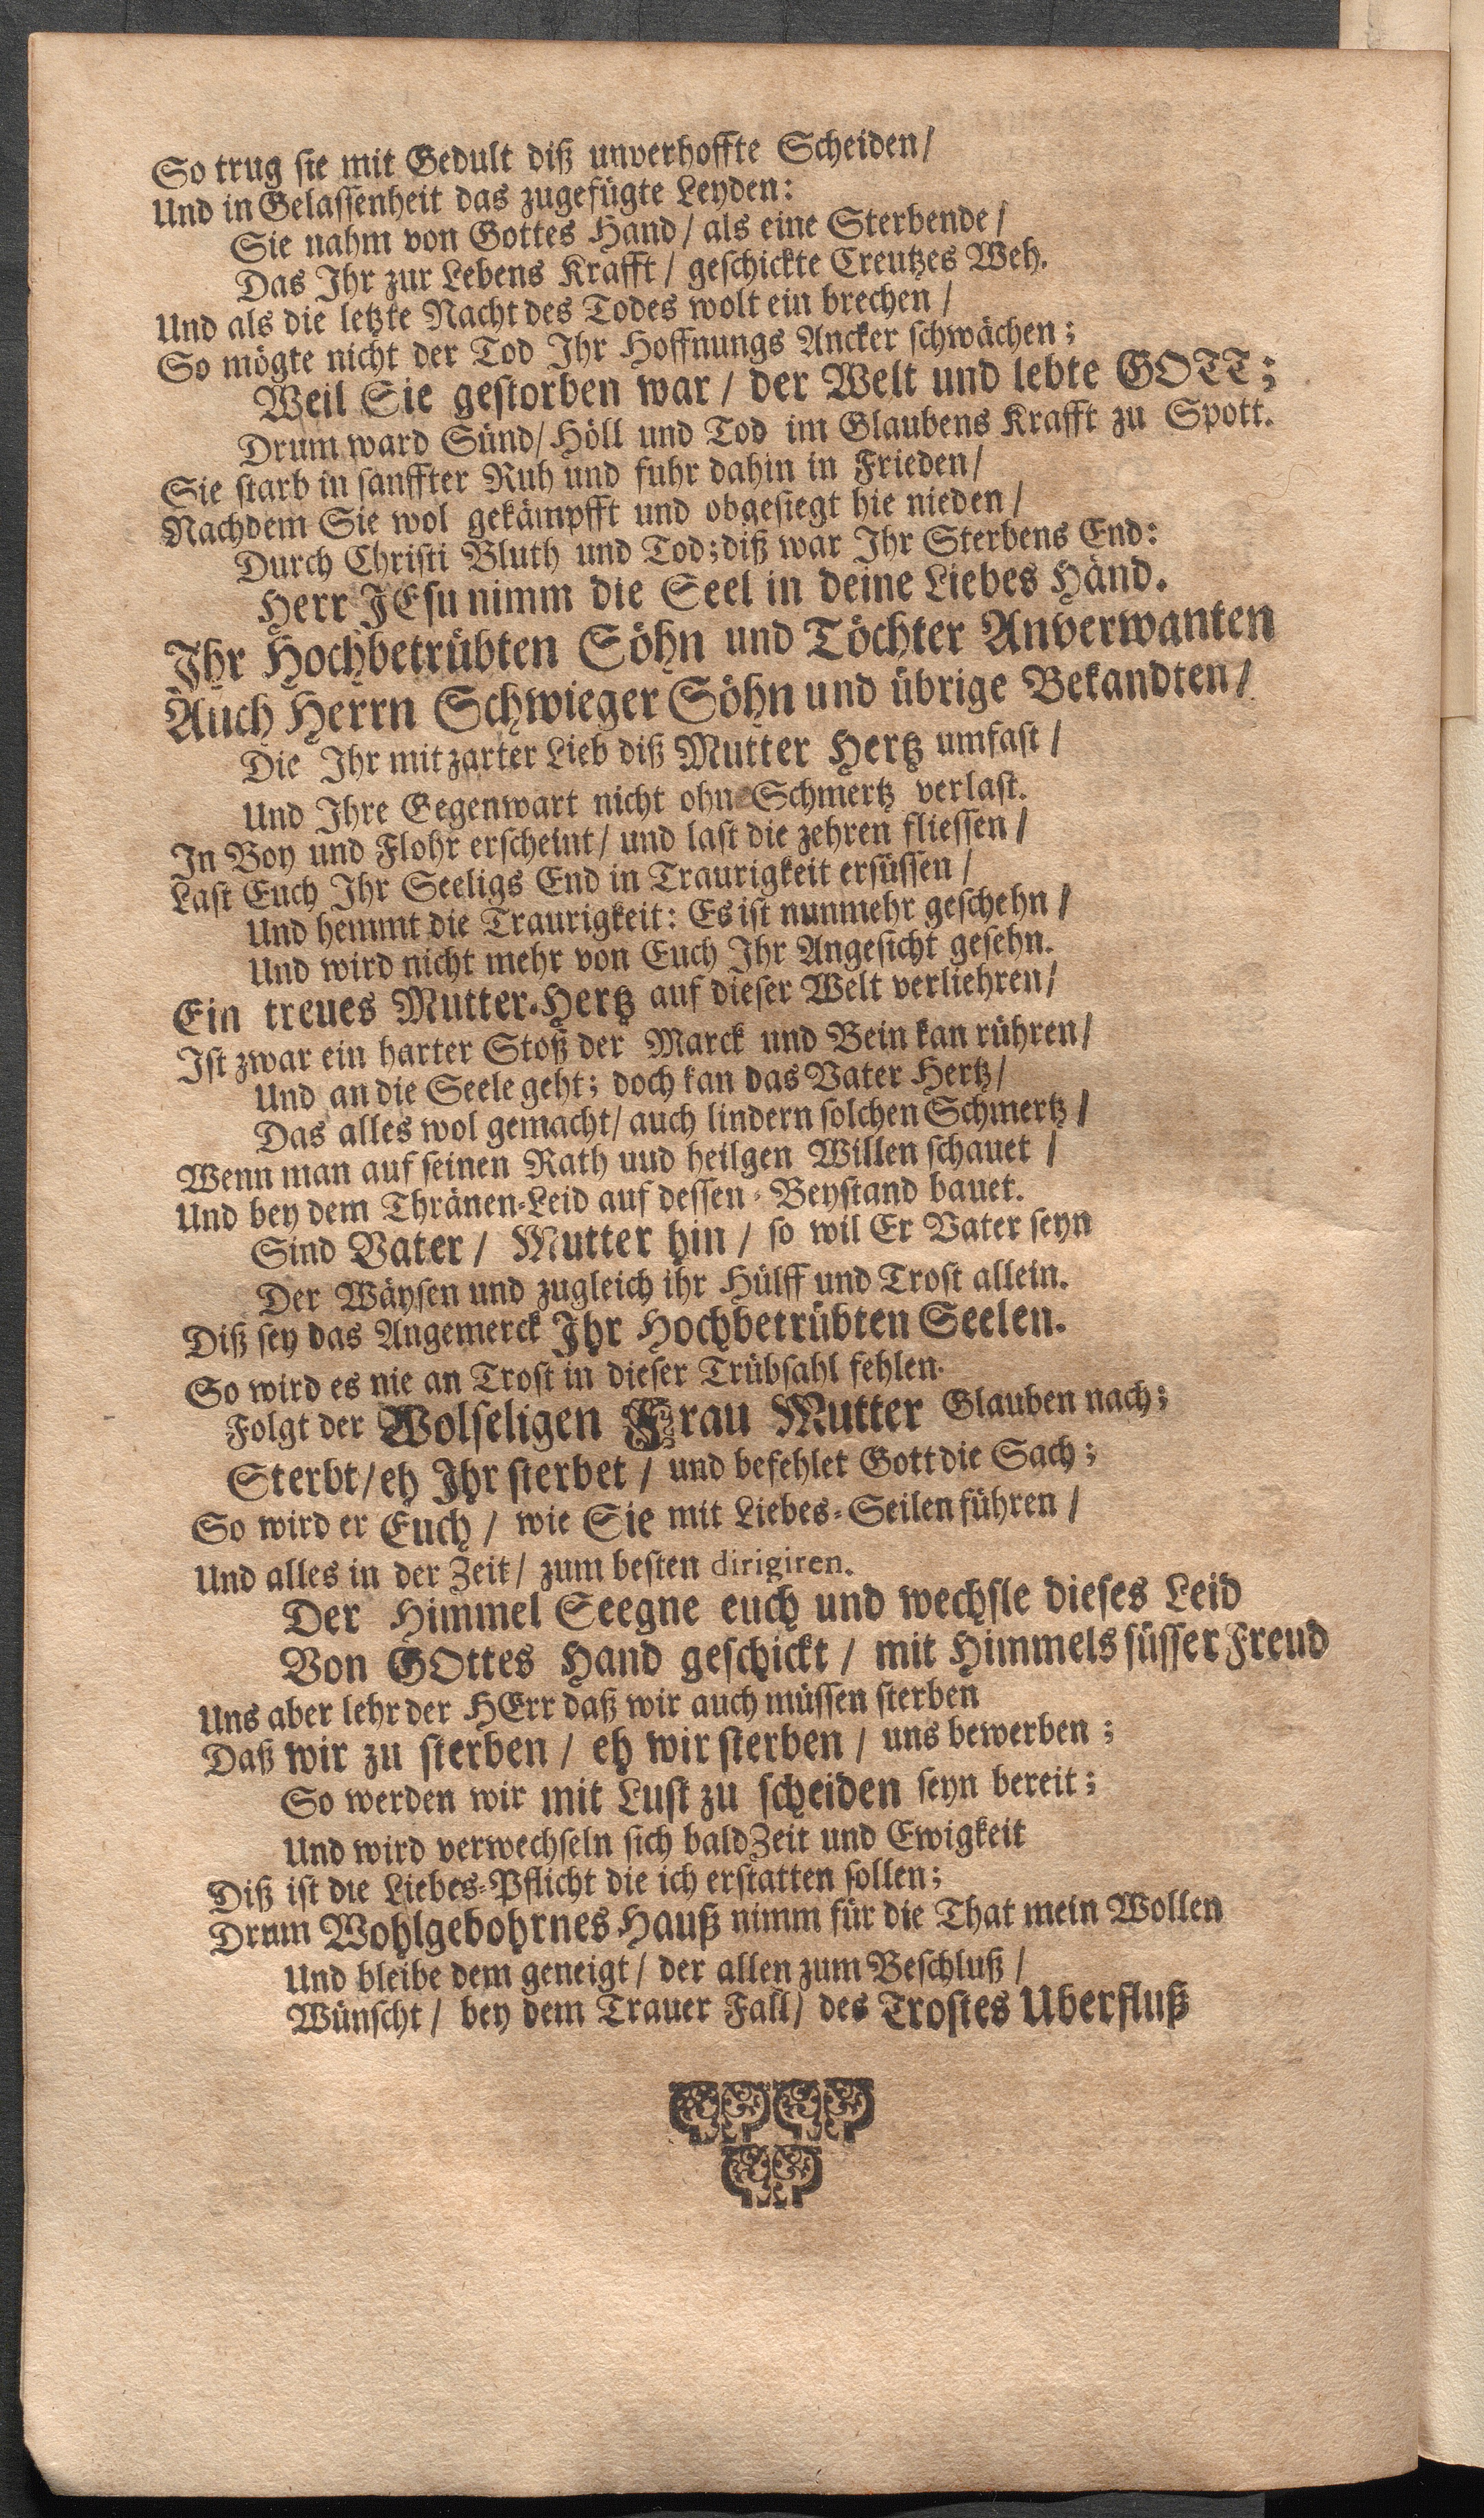 So trug sie mit Gedult diß unverhoffte Scheiden/
Und in Gelassenheit das zugefügte Leyden:
Sie nahm von Gottes Hand/ als eine Sterbende/
Das Ihr zur Lebens Krafft/ geschickte Creutzes Weh.
Und als die letzte Nacht des Todes wolt ein brechen/
So mögte nicht der Tod Ihr Hoffnungs Ancker schwächen;
Weil Sie gestorben war/ der Welt und lebte GOTT;
Drum ward Sünd/ Höll und Tod im Glaubens Krafft zu Spott.
Sie starb in sanffter Ruh und fuhr dahin in Frieden/
Nachdem Sie wol gekämpfft und obgesiegt hie nieden/
Durch Christi Bluth und Tod; diß war Ihr Sterbens End:
Herr JEsu nimm die Seel in deine Liebes Händ.
Ihr Hochbetrübten Söhn und Töchter Anverwanten
Auch Herrn Schwieger Söhn und übrige Bekandten/
Die Ihr mit zarter Lieb diß Mutter Hertz umfast/
Und Ihre Gegenwart nicht ohn Schmertz verlast.
In Boy und Flohr erscheint/ und last die zehren fliessen/
Last Euch Ihr Seeligs End in Traurigkeit ersüssen/
Und hemmt die Traurigkeit: Es ist nunmehr geschehn/
Und wird nicht mehr von Euch Ihr Angesicht gesehn.
Ein treues Mutter-Hertz auf dieser Welt verliehren/
Ist zwar ein harter Stoß der Marck und Bein kan rühren/
Und an die Seele geht; doch kan das Vater Hertz/
Das alles wol gemacht/ auch lindern solchen Schmertz/
Wenn man auf seinen Rath uud heilgen Willen schauet/
Und bey dem Thränen-Leid auf dessen-Beystand bauet.
Sind Vater/ Mutter hin/ so wil Er Vater seyn
Der Wäysen und zugleich ihr Hülff und Trost allein.
Diß sey das Angemerck Ihr Hochbetrübten Seelen.
So wird es nie an Trost in dieser Trübsahl fehlen.
Folgt der Wolseligen Frau Mutter Glauben nach;
Sterbt/ eh Ihr sterbet/ und befehlet Gott die Sach;
So wird er Euch/ wie Sie mit Liebes-Seilen führen/
Und alles in der Zeit/ zum besten dirigiren.
Der Himmel Seegne euch und wechsle dieses Leid
Von GOttes Hand geschickt/ mit Himmels süsser Freud
Uns aber lehr der HErr daß wir auch müssen sterben
Daß wir zu sterben/ eh wir sterben/ uns bewerben;
So werden wir mit Lust zu scheiden seyn bereit;
Und wird verwechseln sich bald Zeit und Ewigkeit
Diß ist die Liebes-Pflicht die ich erstatten sollen;
Drum Wohlgebohrnes Hauß nimm für die That mein Wollen
Und bleibe dem geneigt/ der allen zum Beschluß/
Wünscht/ bey dem Trauer Fall/ des Trostes Uberfluß